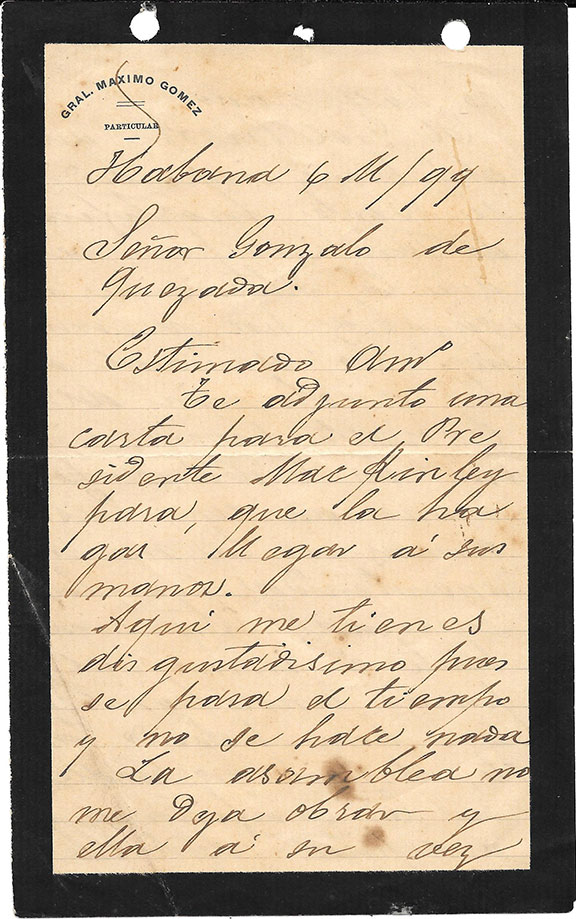 GRAL. MAXIMO GOMEZ
PARTICULAR
Habana 6 M/99
Señor Gonzalo de
Quezada.
Estimado Amº
Te adjunto una
carta para el Pre
sidente Mac Kinley
para, que la ha
gas llegar á sus
manos.
Aquí me tienes
disgustadisimo pues
se pasa el tiempo
y no se hace nada
La asamblea no
me deja obrar y
ella á su vez